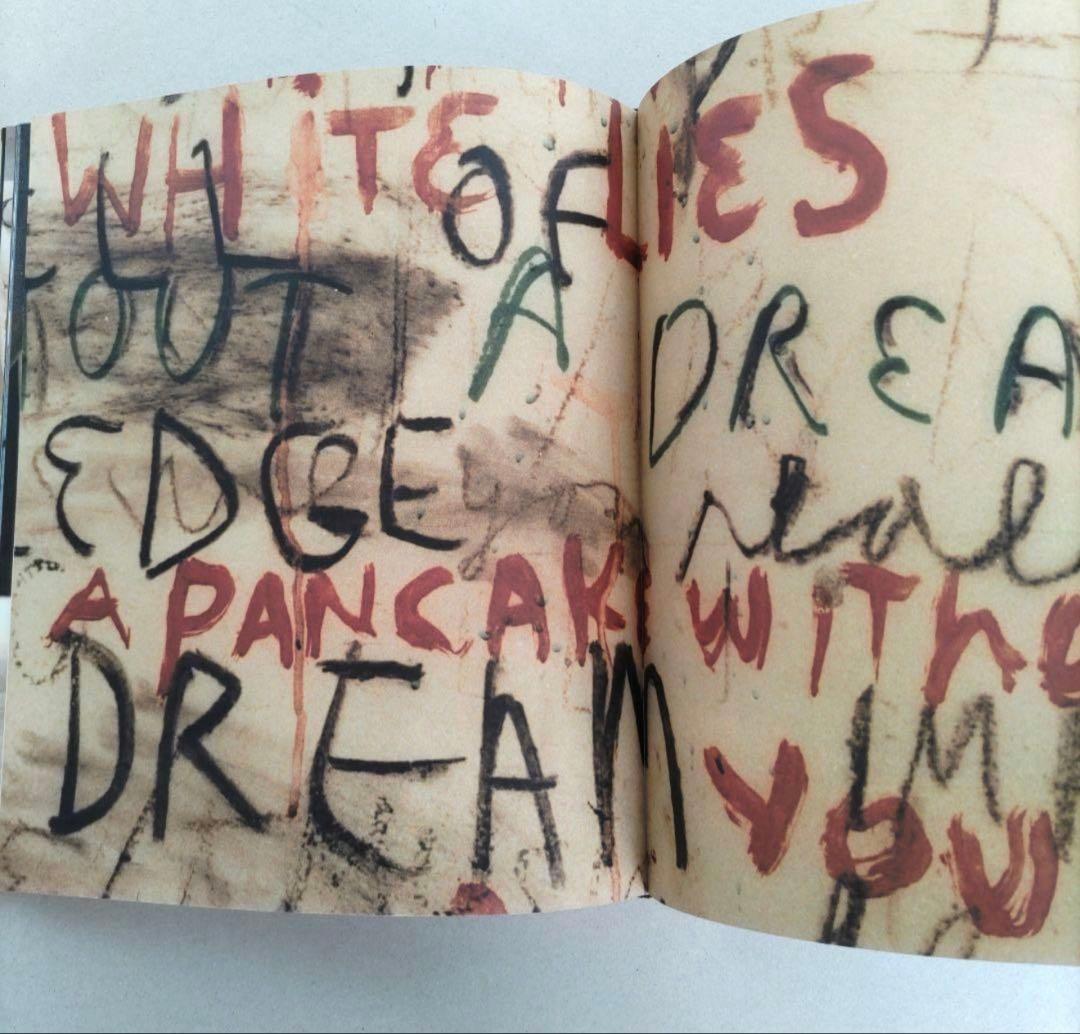 WHiTE LiES
OF
OUT A DREA
EDGE
A PANCAKE WiThO
DREAM
YOU